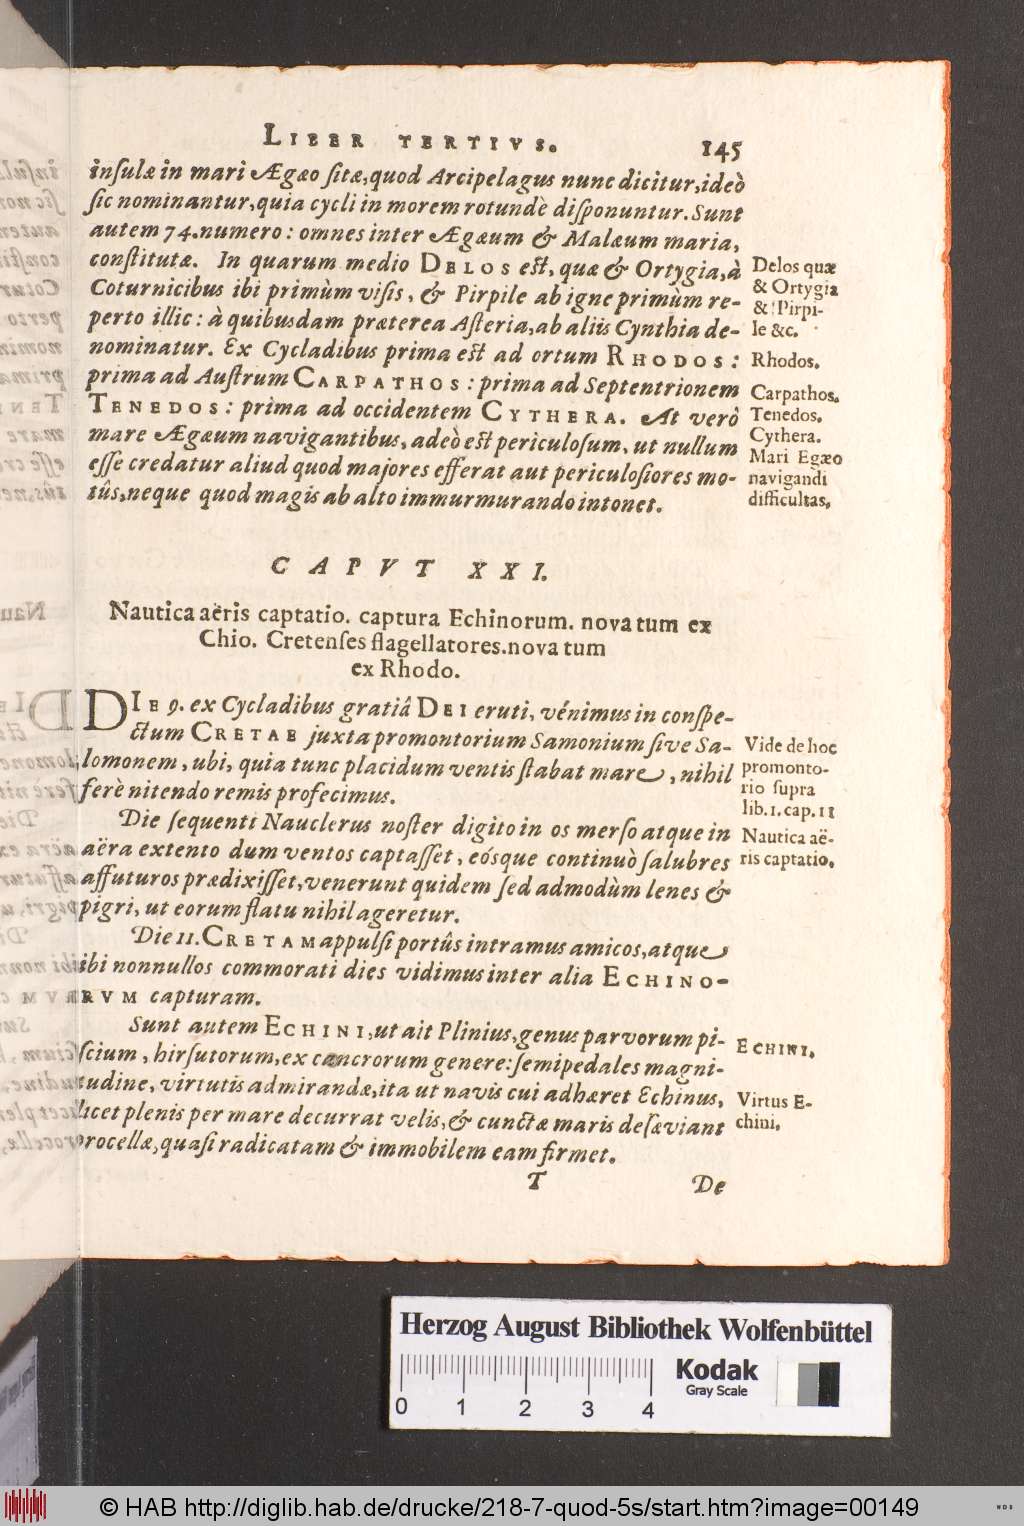 LIBER TERTIVS. 145
inſulæ in mari Ægæo ſitæ, quod Arcipelagus nunc dicitur, ideò
ſic nominantur, quia cycli in morem rotundè diſponuntur. Sunt
autem 74. numero: omnes inter Ægæum & Malæum maria,
conſtitutæ. In quarum medio DELOS eſt, quæ & Ortygia, à
Coturnicibus ibi primùm viſis, & Pirpile ab igne primùm re-
perto illic: à quibusdam præterea Aſteria, ab aliis Cynthia de-
nominatur. Ex Cycladibus prima eſt ad ortum RHODOS:
prima ad Auſtrum CARPATHOS: prima ad Septentrionem
TENEDOS: prima ad occidentem CYTHERA. At verò
mare Ægæum navigantibus, adeò eſt periculoſum, ut nullum
eſſe credatur aliud quod majores efferat aut periculoſiores mo-
tûs, neque quod magis ab alto immurmurando intonet.
Delos quæ
& Ortygia
& Pirpi-
le &c.
Rhodos.
Carpathos.
Tenedos.
Cythera.
Mari Egæo
navigandi
difficultas.
CAPVT XXI.
Nautica aëris captatio. captura Echinorum. nova tum ex
Chio. Cretenſes flagellatores. nova tum
ex Rhodo.
DIE 9. ex Cycladibus gratiâ DEI eruti, vénimus in conſpe-
ctum CRETAE juxta promontorium Samonium ſive Sa-
lomonem, ubi, quia tunc placidum ventis ſtabat mare, nihil
ferè nitendo remis profecimus.
Die ſequenti Nauclerus noſter digito in os merſo atque in
aëra extento dum ventos captaſſet, eósque continuò ſalubres
affuturos prædixiſſet, venerunt quidem ſed admodùm lenes &
pigri, ut eorum flatu nihil ageretur.
Die 11. CRETAM appulſi portûs intramus amicos, atque
ibi nonnullos commorati dies vidimus inter alia ECHINO-
RVM capturam.
Sunt autem ECHINI, ut ait Plinius, genus parvorum pi-
ſcium, hirſutorum, ex cancrorum genere: ſemipedales magni-
tudine, virtutis admirandæ, ita ut navis cui adhæret Echinus,
licet plenis per mare decurrat velis, & cunctæ maris deſæviant
procellæ, quaſi radicatam & immobilem eam firmet.
Vide de hoc
promonto-
rio ſupra
lib. 1. cap. 11
Nautica aë-
ris captatio.
ECHINI.
Virtus E-
chini.
T De
Herzog August Bibliothek Wolfenbüttel
0 1 2 3 4
Kodak
Gray Scale
© HAB http://diglib.hab.de/drucke/218-7-quod-5s/start.htm?image=00149